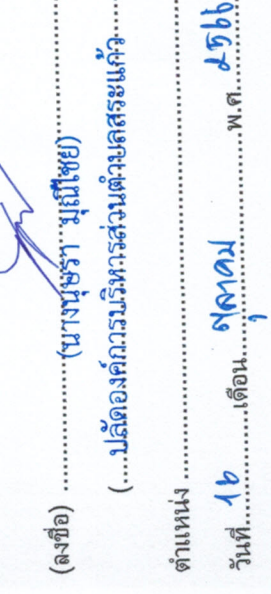 (ลงชื่อ) ......(นางนุษรา มุณีไชย)......
(....ปลัดองค์การบริหารส่วนตำบลสระแก้ว....
ตำแหน่ง ............
วันที่ 16 เดือน ตุลาคม พ.ศ. 2566